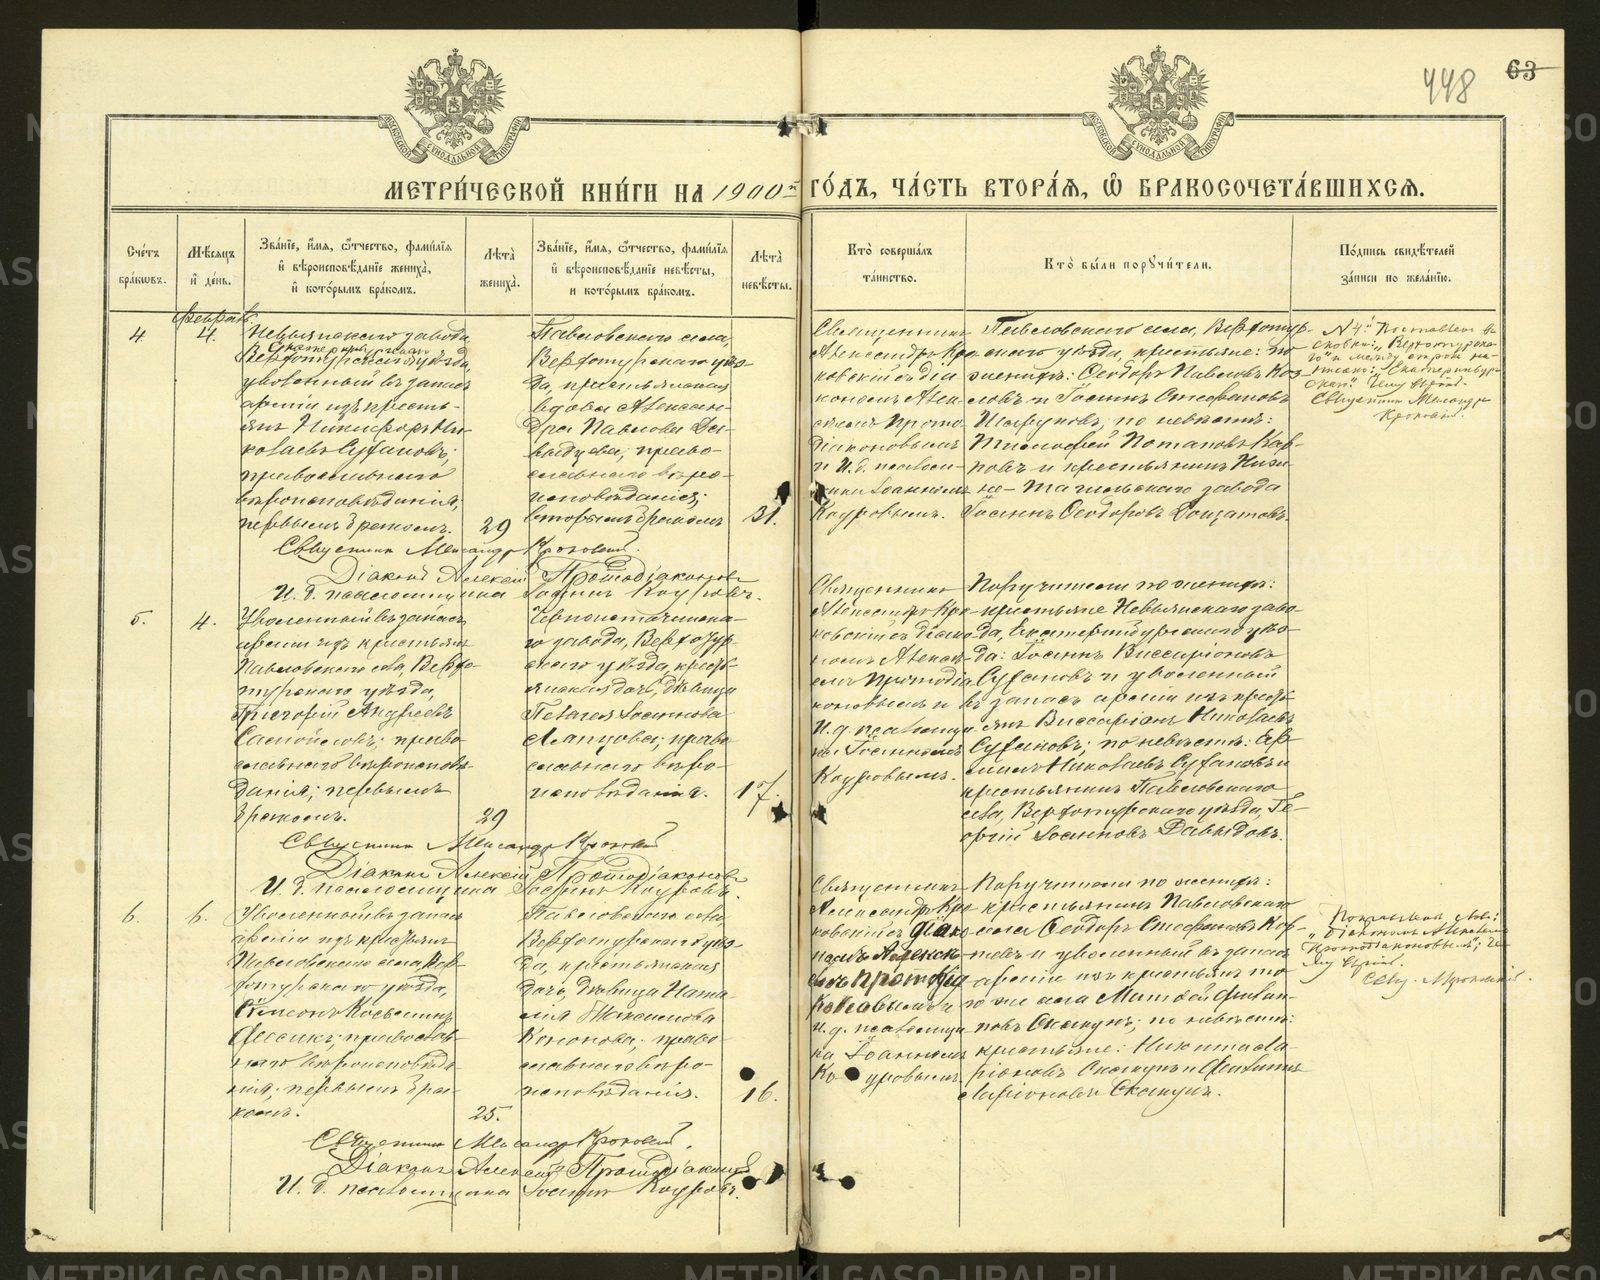 448
63
МОСКОВСКОЙ СѴНОДАЛЬНОЙ ТИПОГРАФІИ
МОСКОВСКОЙ СѴНОДАЛЬНОЙ ТИПОГРАФІИ
МЕТРИ́ЧЕСКОЙ КНИ́ГИ НА 1900й ГО́ДЪ, ЧА́СТЬ ВТОРА́Ѧ, Ѽ БРАКОСОЧЕТА́ВШИХСѦ.
Сче́тъ бра́кѡвъ.
Мѣ́сѧцъ и҆ де́нь.
Зва́нїе, и҆́мѧ, ѻ҆́тчество, фами́лїѧ и҆ вѣроисповѣ́данїе жениха̀, и҆ кото́рымъ бра́комъ.
Лѣ́та жениха̀.
Зва́нїе, и҆́мѧ, ѻ҆́тчество, фами́лїѧ и҆ вѣроисповѣ́данїе невѣ́сты, и҆ кото́рымъ бра́комъ.
Лѣ́та невѣ́сты.
Кто̀ соверша́лъ та́инство.
Кто̀ бы́ли порꙋчи́тели.
По́дпись свидѣ́телей за́писи по жела́нїю.
Февраль
4.
4.
Невьянскаго завода,
Екатеринбургскаго
Верхотурскаго уѣзда,
уволенный въ запасъ
арміи изъ кресть-
янъ Никифоръ Ни-
колаевъ Суфановъ;
православнаго
вѣроисповѣданія;
первымъ бракомъ.
29
Павловскаго села,
Верхотурскаго уѣз-
да, крестьянская
вдова Алексан-
дра Павлова Да-
выдова; право-
славнаго вѣро-
исповѣданія;
вторымъ бракомъ
31.
Священникъ
Александръ Кро-
ковскій съ діа
кономъ Алек
сѣемъ Прото
діаконовымъ
и И. д. псалом-
щика Іоанномъ
Кауровымъ.
Павловскаго села, Верхотур-
скаго уѣзда, крестьяне: по
женихѣ: Ѳеодоръ Павловъ Коз-
ловъ и Іоаннъ Стефановъ
по невѣстѣ:
Тимоѳей Потаповъ Кар-
повъ и крестьянинъ Ниж-
не-Тагильскаго завода
Іоаннъ Ѳеодоровъ
Священникъ Александръ Кроковскій.
Діаконъ Алексій Протодіаконовъ
И. д. псаломщика Іоаннъ Кауровъ.
5.
4.
Уволенный въ запасъ
арміи изъ крестьянъ
Павловскаго села, Верхо-
турскаго уѣзда,
Григорій Андреевъ
право
славнаго вѣроисповѣ-
данія; первымъ
бракомъ.
29
Черноисточинска-
го завода, Верхотур-
скаго уѣзда, кресть
янская дочь, дѣвица
Пелагея Іоаннова
право
славнаго вѣро-
исповѣданія.
17.
Священникъ
Александръ Кро-
ковскій съ діако-
номъ Алексѣ-
емъ Протодіа
коновымъ и
И. д. псаломщи
ка Іоанномъ
Кауровымъ.
Поручители по женихѣ:
крестьяне Невьянскаго заво-
да, Екатеринбургскаго уѣз-
да: Іоаннъ Виссаріоновъ
Суфановъ и уволенный
въ запасъ арміи изъ кресть
янъ Виссаріонъ Николаевъ
Суфановъ; по невѣстѣ:
Николаевъ Суфановъ и
крестьянинъ Павловскаго
села, Верхотурскаго уѣзда, Ге-
оргій Іоанновъ Давыдовъ.
Священникъ Александръ Кроковскій
Діаконъ Алексій Протодіаконовъ
И. д. псаломщика Іоаннъ Кауровъ.
6.
6.
Уволенный въ запасъ
арміи изъ крестьянъ
Павловскаго села Вер-
хотурскаго уѣзда,
Сѵмеонъ
православ-
наго вѣроисповѣда-
нія; первымъ бра-
комъ.
25.
Павловскаго села,
Верхотурскаго уѣз-
да, крестьянская
дочь, дѣвица Ната-
лія Максимова
Кононова; право-
славнаго вѣро-
исповѣданія.
16.
Священникъ
Александръ Кро
ковскій съ діако-
номъ Алексѣ-
емъ Протодіа
коновымъ и
и. д. псаломщи
ка Іоанномъ
Кауровымъ
Поручители по женихѣ:
крестьянинъ Павловскаго
села Ѳеодоръ Стефановъ
и уволенный въ запасъ
арміи изъ крестьянъ то
го же села Матѳей
Скакунъ; по невѣстѣ:
крестьяне: Никита Ла-
ріоновъ Скакунъ и
Ларіоновъ Скакунъ.
Священникъ Александръ Кроковскій.
Діаконъ Алексій Протодіаконовъ
И. д. псаломщика Іоаннъ Кауровъ.